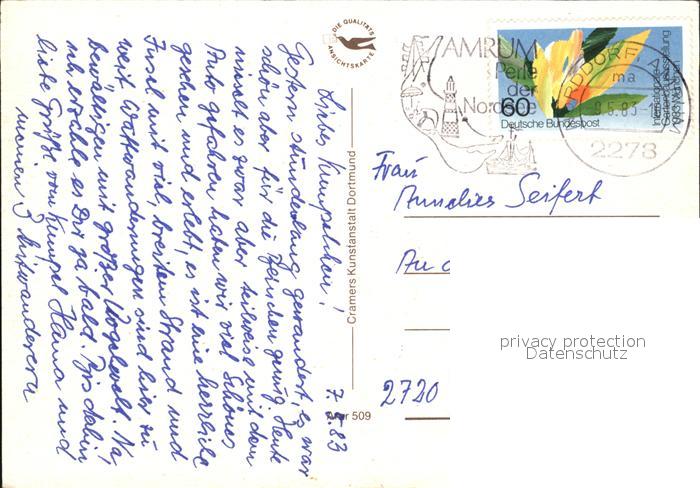 7.5.83
Liebes Kumpelchen!
Gestern stundenlang gewandert, es war
schön aber für die Menschen genug. Heute
nieselt es zwar aber teilweise mit dem
Auto gefahren haben wir viel Schönes
gesehen und erlebt, es ist eine herrliche
Insel mit viel, breitem Strand und
weit Wattwanderungen sind hier zu
bewältigen mit großer Vogelwelt. Na,
ich erzähle es Dir ja bald. Bis dahin
liebe Grüße vom Kumpel Hanna und
meinen 3 Mitwanderern
DIE QUALITÄTS
ANSICHTSKARTE
Cramers Kunstanstalt Dortmund
Amr 509
AMRUM
Perle
der
Nordsee
60
Deutsche Bundespost
Internationale
Gartenbauausstellung
1983 München
NORDDORF,
ma
9.5.83
2278
Frau
Annelies Seifert
An d
2720
privacy protection
Datenschutz